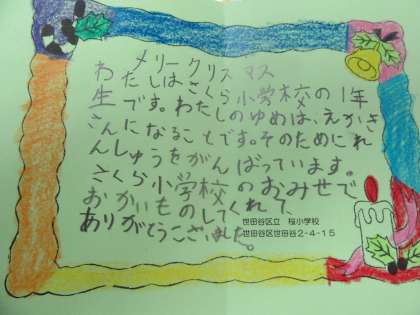 メリークリスマス
わたしはさくら小学校の1年
生です。わたしのゆめは、えかき
さんになることです。そのためにれ
んしゅうをがんばっています。
さくら小学校のおみせで
おかいものしてくれて、
ありがとうございました。
世田谷区立 桜小学校
世田谷区世田谷2-4-15